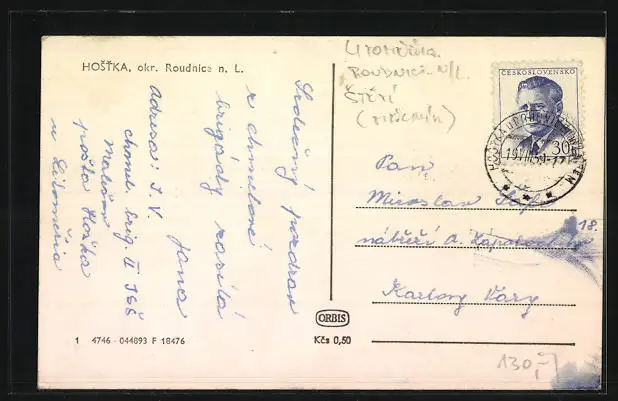 HOŠŤKA, okr. Roudnice n. L.
Srdečný pozdrav
z chmelové
brigády zasílá
Jana
Adresa: J. V.
chmel. brig. II JSŠ
Malešov
pošta Hoštka
u Litoměřic
1 4746 - 044893 F 18476
ORBIS
Kčs 0,50
Litoměřice
ROUDNICE N/L.
ŠTĚTÍ
ČESKOSLOVENSKO
30
HOŠTKA
Pan
Miroslav
nábřeží A. Zápotockého
18.
Karlovy Vary
130,-